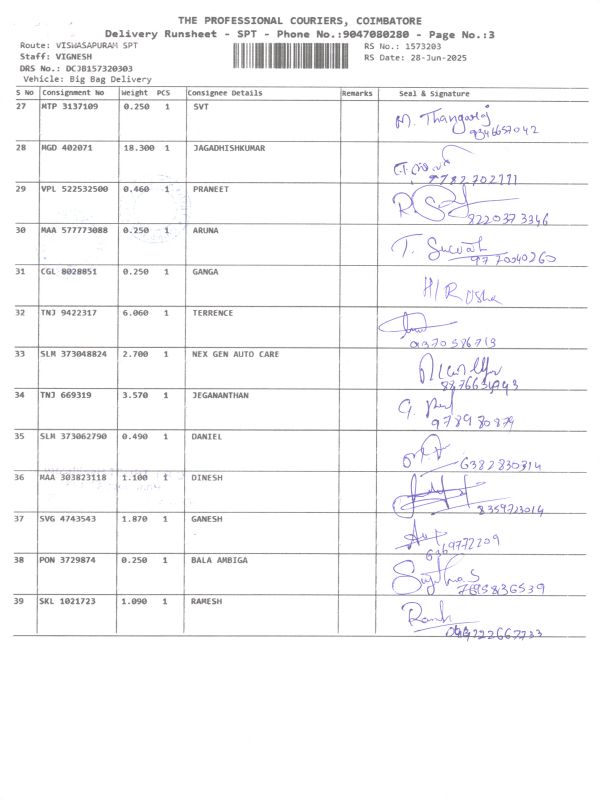 THE PROFESSIONAL COURIERS, COIMBATORE
Delivery Runsheet - SPT - Phone No.:9047080280 - Page No.:3
Route: VISWASAPURAM SPT RS No.: 1573203
Staff: VIGNESH RS Date: 28-Jun-2025
DRS No.: DCJB157320303
Vehicle: Big Bag Delivery
S No Consignment No Weight PCS Consignee Details Remarks Seal & Signature
27 MTP 3137109 0.250 1 SVT M. Thangaraj
9346657042
28 MGD 402071 18.300 1 JAGADHISHKUMAR
29 VPL 522532500 0.460 1 PRANEET
8220373346
30 MAA 577773088 0.250 1 ARUNA
9770040260
31 CGL 8028851 0.250 1 GANGA H/R Usha
32 TNJ 9422317 6.060 1 TERRENCE
33 SLM 373048824 2.700 1 NEX GEN AUTO CARE
34 TNJ 669319 3.570 1 JEGANANTHAN
35 SLM 373062790 0.490 1 DANIEL
6382830314
36 MAA 303823118 1.100 1 DINESH
8359723014
37 SVG 4743543 1.870 1 GANESH
38 PON 3729874 0.250 1 BALA AMBIGA
39 SKL 1021723 1.090 1 RAMESH